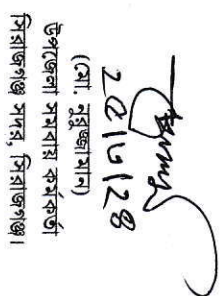 (মো: নুরুজ্জামান)
উপজেলা সমবায় কর্মকর্তা
সিরাজগঞ্জ সদর, সিরাজগঞ্জ।